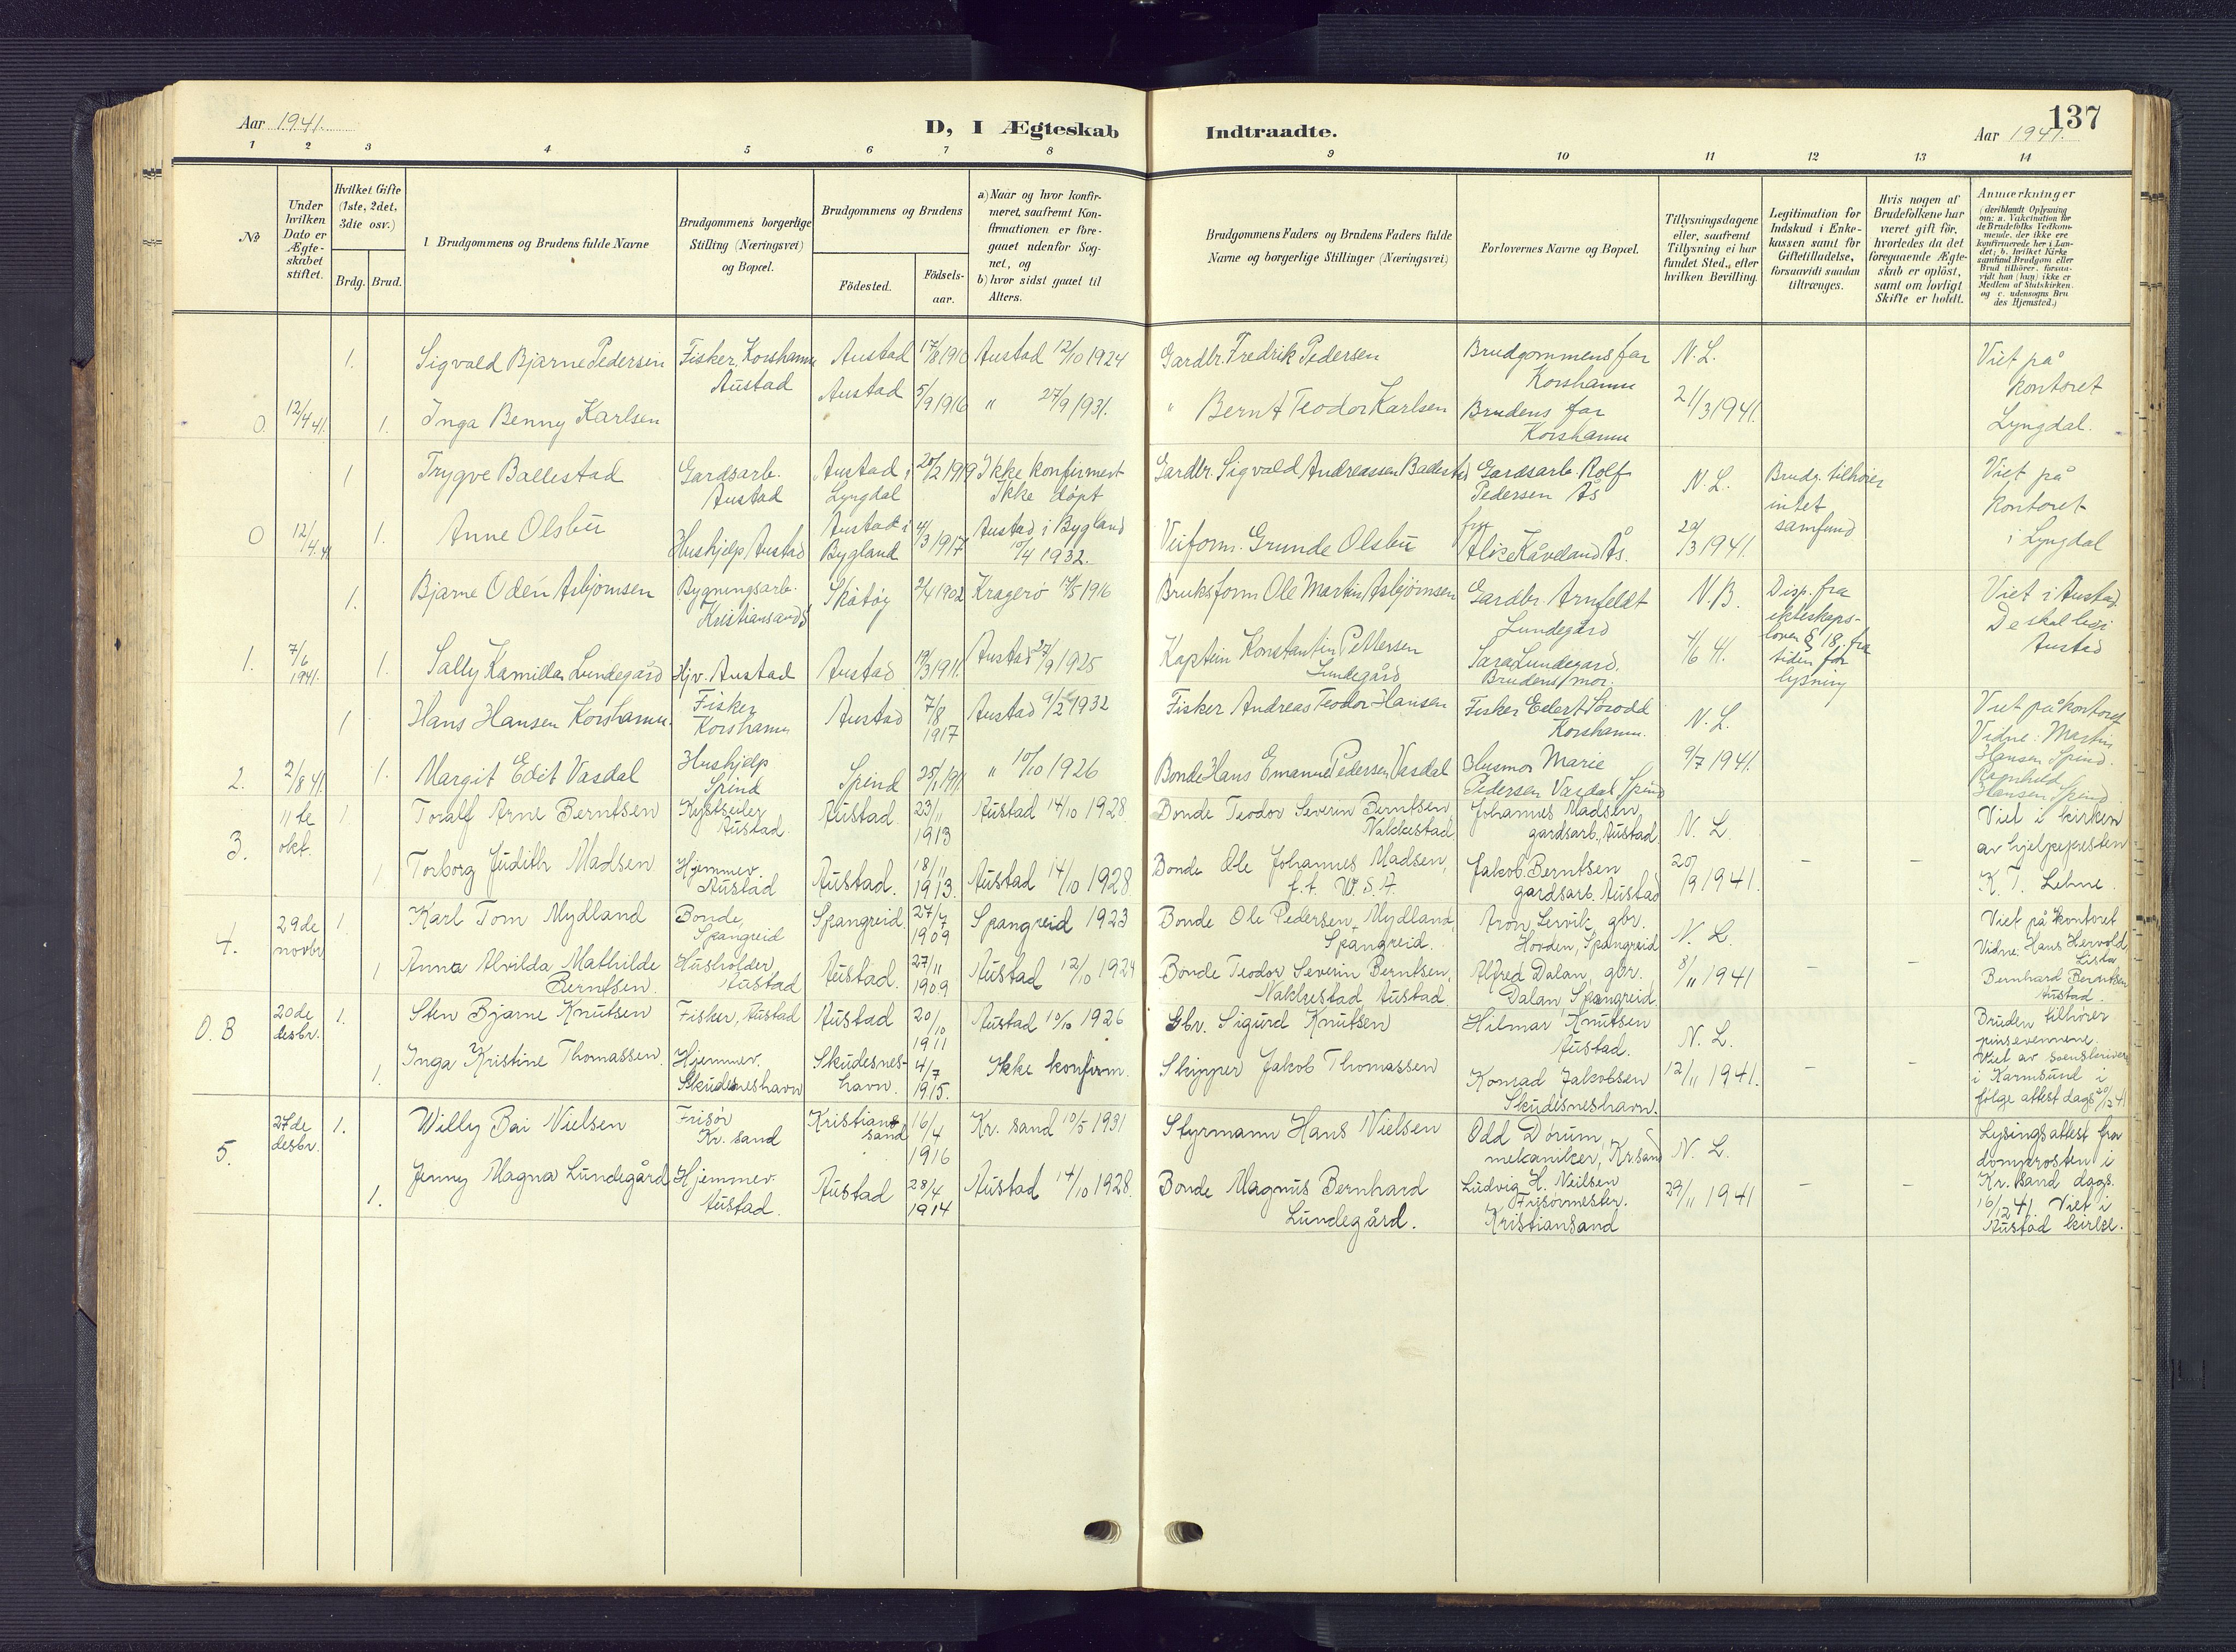 Aar 1941.
D, I Ægteskab
Indtraadte.
137
Aar 1941.
1 2 3 4 5 6 7 8 9 10 11 12 13 14
No
Under hvilken Dato er Ægteskabet stiftet.
Hvilket Gifte (1ste, 2det, 3die osv.)
Brdg. Brud.
1 Brudgommens og Brudens fulde Navne
Brudgommens borgerlige Stilling (Næringsvei) og Bopæl.
Brudgommens og Brudens
Födested.
Födselsaar.
a) Naar og hvor konfirmeret, saafremt Konfirmationen er foregaaet udenför Sognet, og
b) hvor sidst gaaet til Alters.
Brudgommens Faders og Brudens Faders fulde Navne og borgerlige Stillinger (Næringsvei)
Forlovernes Navne og Bopæl.
Tillysningsdagene eller, saafremt Tillysning ei har fundet Sted, efter hvilken Bevilling.
Legitimation for Indskud i Enkekassen samt för Giftetilladelse, forsaavidt saadan tiltrænges.
Hvis nogen af Brudefolkene har været gift för, hvorledes da det foregaaende Ægteskab er oplöst, samt om lovligt Skifte er holdt.
Anmærkninger
(deriblandt Oplysning om: a. Vakcination for de Brudefolks Vedkommende, der ikke ere konfirmerede her i Landet; b. hvilket Kirkesamfund Brudgom eller Brud tilhörer, forsaavidt han (hun) ikke er Medlem af Statskirken, og c. udensogns Brudes Hjemsted.)
1. Sigvald Bjarne Pedersen Fisker, Korshamn Austad Austad 17/8 1910 Austad 12/10 1924 Gardbr. Fredrik Pedersen Brudgommens far Korshamn N. L. Viet på kontoret
O. 12/4 41. 1. Inga Benny Karlsen Austad 5/9 1916 " 27/9 1931. " Bernt Teodor Karlsen Brudens far Korshamn 21/3 1941. Lyngdal.
1 Trygve Ballestad Gardsarb. Austad Austad i Lyngdal 20/2 1919 Ikke konfirmert Ikke döpt Gardbr. Sigvald Andreassen Ballestad Gardsarb Rolf Pedersen Ås N. L. Brudg. tilhörer intet samfund Viet på kontoret
O 12/4.41 1. Anne Olsbu Hushjelp Austad Austad i Bygland 4/3 1917 Austad i Bygland 10/4 1932. Veiform. Grunde Olsbu fru Alice Kåveland Ås. 20/3 1941. i Lyngdal
1. Bjarne Odén Asbjörnsen Bygningsarb. Kristiansand S Skåtöy 2/4 1902 Kragerö 14/5 1916 Bruksform Ole Martin Asbjörnsen Gardbr. Arnfeldt Lundegård N. B. Disp. fra ekteskapsloven § 18, fra tiden for lysning Viet i Austad.
1. 7/6 1941. 1. Sally Kamilla Lundegård Hjv. Austad Austad 19/3 1911. Austad 27/9 1925 Kaptein Konstantin Pettersen Lundegård Sara Lundegård. Brudens mor. 4/6 41. De skal bo i Austad
1 Hans Hansen Korshamn. Fisker Korshamn Austad 7/8 1917 Austad 9/2 1932 Fisker Andreas Teodor Hansen Fisker Korshamn. N. L. Viet på kontoret
2. 2/8 41. 1. Margit Edit Vasdal Hushjelp Spind Spind 25/1 1911. " 10/10 1926 Bonde Hans Emanuel Pedersen Vasdal Husmor Marie Pedersen Vasdal, Spind 9/7 1941. Vidne: Martin Hansen Spind. Ragnhild Hansen Spind
3. 11te okt. 1. Toralf Arne Berntsen Kystseiler Austad. Austad. 23/1 1913 Austad 14/10 1928. Bonde Teodor Severin Berntsen, Nakkestad Johannes Madsen, gardsarb. Austad N. L. Viet i kirken av hjelpepresten
1 Torborg Judith Madsen Hjemmev. Austad Austad. 18/11 1913. Austad 14/10 1928 Bonde Ole Johannes Madsen, f.t. U.S.A. Jakob Berntsen gardsarb. Austad 20/9 1941. – – K. T. Lehne.
4. 29de novbr 1. Karl Tom Mydland Bonde, Spangreid Spangreid. 27/7 1909 Spangreid 1923 Bonde Ole Pedersen Mydland, Spangreid. Aron Lervik, gbr. Hovden, Spangreid N. L. Viet på kontoret Vidne: Hans Hervold Lista
1 Anna Alvilda Mathilde Berntsen. Husholder Austad Austad. 27/11 1909 Austad 12/10 1924 Bonde Teodor Severin Berntsen, Nakkestad, Austad. Alfred Dalan, gbr. Dalan Spangreid. 8/11 1941 – – Bernhard Berntsen Austad.
O. 8 20de desbr. 1. Sten Bjarne Knutsen Fisker, Austad Austad 20/10 1911 Austad 10/10 1926 Gbr. Sigurd Knutsen Hilmar Knutsen Austad. N. L. Bruden tilhører pinsevennene.
1. Inga Kristine Thomassen. Hjemmev. Skudeneshavn Skudesneshavn. 4/7 1915. Ikke konfirm. Skipper Jakob Thomassen Konrad Jakobsen Skudesneshavn. 12/11 1941. – – Viet av sorenskriveren i Karmsund i følge attest dags 20/12 41
5. 27de desbr. 1. Willy Bai Nielsen Frisör Kr. sand Kristiansand 16/4 1916 Kr. sand 10/5 1931 Styrmann Hans Nielsen Odd Dörum, mekaniker, Kr.sand N. L. Lysingsattest fra domprosten i
1. Jenny Magna Lundegård Hjemmev. Austad. Austad 28/4 1914 Austad 14/10 1928. Bonde Magnus Bernhard Lundegård. Ludvig H. Neilsen Frisörmester. Kristiansand 29/11 1941 – – Kr. sand dags. 16/12 41. Viet i Austad kirke.